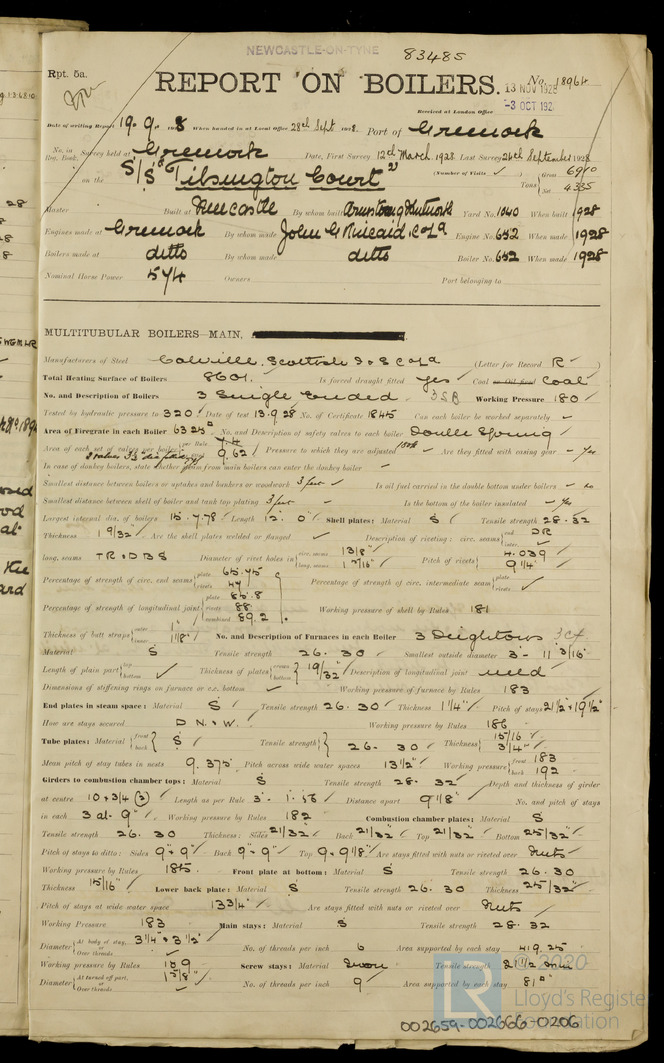 NEWCASTLE-ON-TYNE 83485
Rpt. 5a.
REPORT ON BOILERS. No. 18964
13 NOV 1928
Received at London Office -3 OCT 192
Date of writing Report 19. 9. 1928 When handed in at Local Office 28th Sept. 1928. Port of Greenock
No. in Reg. Book. Survey held at Greenock Date, First Survey 12th March 1928 Last Survey 26th September 1928
on the S/S "Tilsington Court" (Number of Visits ) Tons Gross 6910 Net 4335
Master Built at Newcastle By whom built Armstrong Whitworth Yard No. 1040 When built 1928
Engines made at Greenock By whom made John G Kincaid & Co Ld Engine No. 652 When made 1928
Boilers made at ditto By whom made ditto Boiler No. 652 When made 1928
Nominal Horse Power 574 Owners Port belonging to
MULTITUBULAR BOILERS—MAIN,
Manufacturers of Steel Colville, Scottish I & S Co Ld (Letter for Record R )
Total Heating Surface of Boilers 8601. Is forced draught fitted yes Coal or Oil fired Coal
No. and Description of Boilers 3 Single Ended 3SB Working Pressure 180
Tested by hydraulic pressure to 320 Date of test 13.9.28 No. of Certificate 1845 Can each boiler be worked separately ✓
Area of Firegrate in each Boiler 63.25 No. and Description of safety valves to each boiler Double Spring
Area of each set of valves per boiler per Rule 9.4 9.62 Pressure to which they are adjusted Are they fitted with easing gear yes
In case of donkey boilers, state whether steam from main boilers can enter the donkey boiler
Smallest distance between boilers or uptakes and bunkers or woodwork 3 feet Is oil fuel carried in the double bottom under boilers no
Smallest distance between shell of boiler and tank top plating 3 feet Is the bottom of the boiler insulated yes
Largest internal dia. of boilers 15.7.78 Length 12. 0" Shell plates: Material S Tensile strength 28-32
Thickness 1 9/32" Are the shell plates welded or flanged Description of riveting: circ. seams end DR inter.
long. seams TR & DBS Diameter of rivet holes in circ. seams 1 3/8" long. seams 1 5/16" Pitch of rivets 4.039 9 1/4"
Percentage of strength of circ. end seams plate 65.95 rivets 47 Percentage of strength of circ. intermediate seam plate rivets
Percentage of strength of longitudinal joint plate 85.8 rivets 88 combined 89.2 Working pressure of shell by Rules 181
Thickness of butt straps outer 1" inner 1 1/8" No. and Description of Furnaces in each Boiler 3 Deightons 3 Cf
Material S Tensile strength 26.30 Smallest outside diameter 3'- 11 3/16"
Length of plain part top bottom Thickness of plates crown bottom 19/32" Description of longitudinal joint weld
Dimensions of stiffening rings on furnace or c.c. bottom Working pressure of furnace by Rules 183
End plates in steam space: Material S Tensile strength 26.30 Thickness 1 1/4" Pitch of stays 21 1/2 x 19 1/2"
How are stays secured D.N.&W. Working pressure by Rules 186
Tube plates: Material front back S Tensile strength 26. 30 Thickness 15/16" 3/4"
Mean pitch of stay tubes in nests 9.375 Pitch across wide water spaces 13 1/2" Working pressure front 183 back 192
Girders to combustion chamber tops: Material S Tensile strength 28. 32 Depth and thickness of girder
at centre 10 x 3/4 (2) Length as per Rule Distance apart 9 1/8" No. and pitch of stays
in each 3 at 9" Working pressure by Rules 182 Combustion chamber plates: Material S
Tensile strength 26. 30 Thickness: Sides 21/32" Back 21/32" Top 21/32" Bottom 25/32"
Pitch of stays to ditto: Sides 9" x 9" Back 9" x 9" Top 9 x 9 1/8" Are stays fitted with nuts or riveted over Nuts
Working pressure by Rules 185 Front plate at bottom: Material S Tensile strength 26.30
Thickness 15/16" Lower back plate: Material S Tensile strength 26.30 Thickness 25/32"
Pitch of stays at wide water space 13 3/4" Are stays fitted with nuts or riveted over Nuts
Working Pressure 183 Main stays: Material S Tensile strength 28.32
Diameter At body of stay, or Over threads 3 1/4" & 3 1/2" No. of threads per inch 6 Area supported by each stay 419.25
Working pressure by Rules Screw stays: Material Iron Tensile strength 21 1/2 min
Diameter At turned off part, or Over threads 1 5/8" No. of threads per inch 9 Area supported by each stay 81"
© 2020
LR Lloyd's Register Foundation
002659-002666-0206